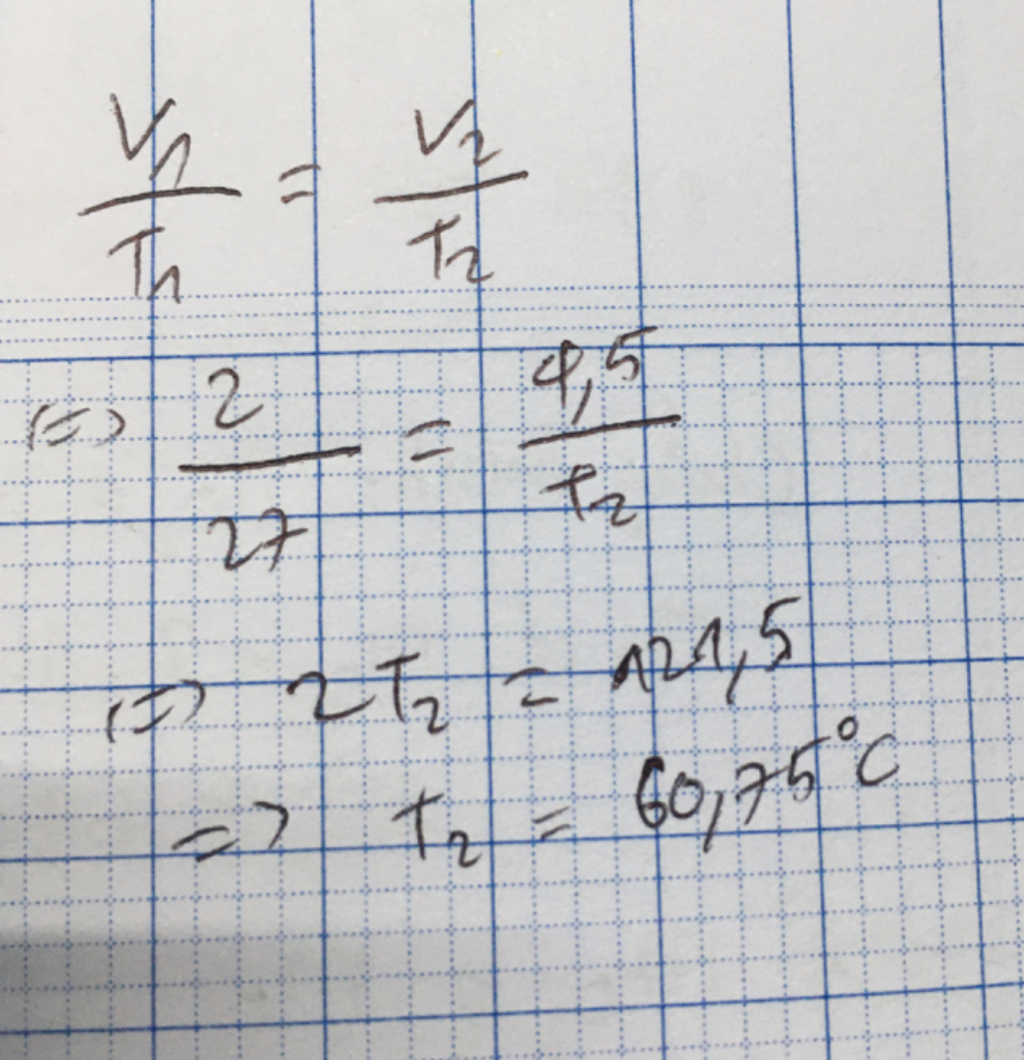 V1/T1 = V2/T2
(=) 2/27 = 4,5/T2
(=) 2T2 = 121,5
=> T2 = 60,75°C